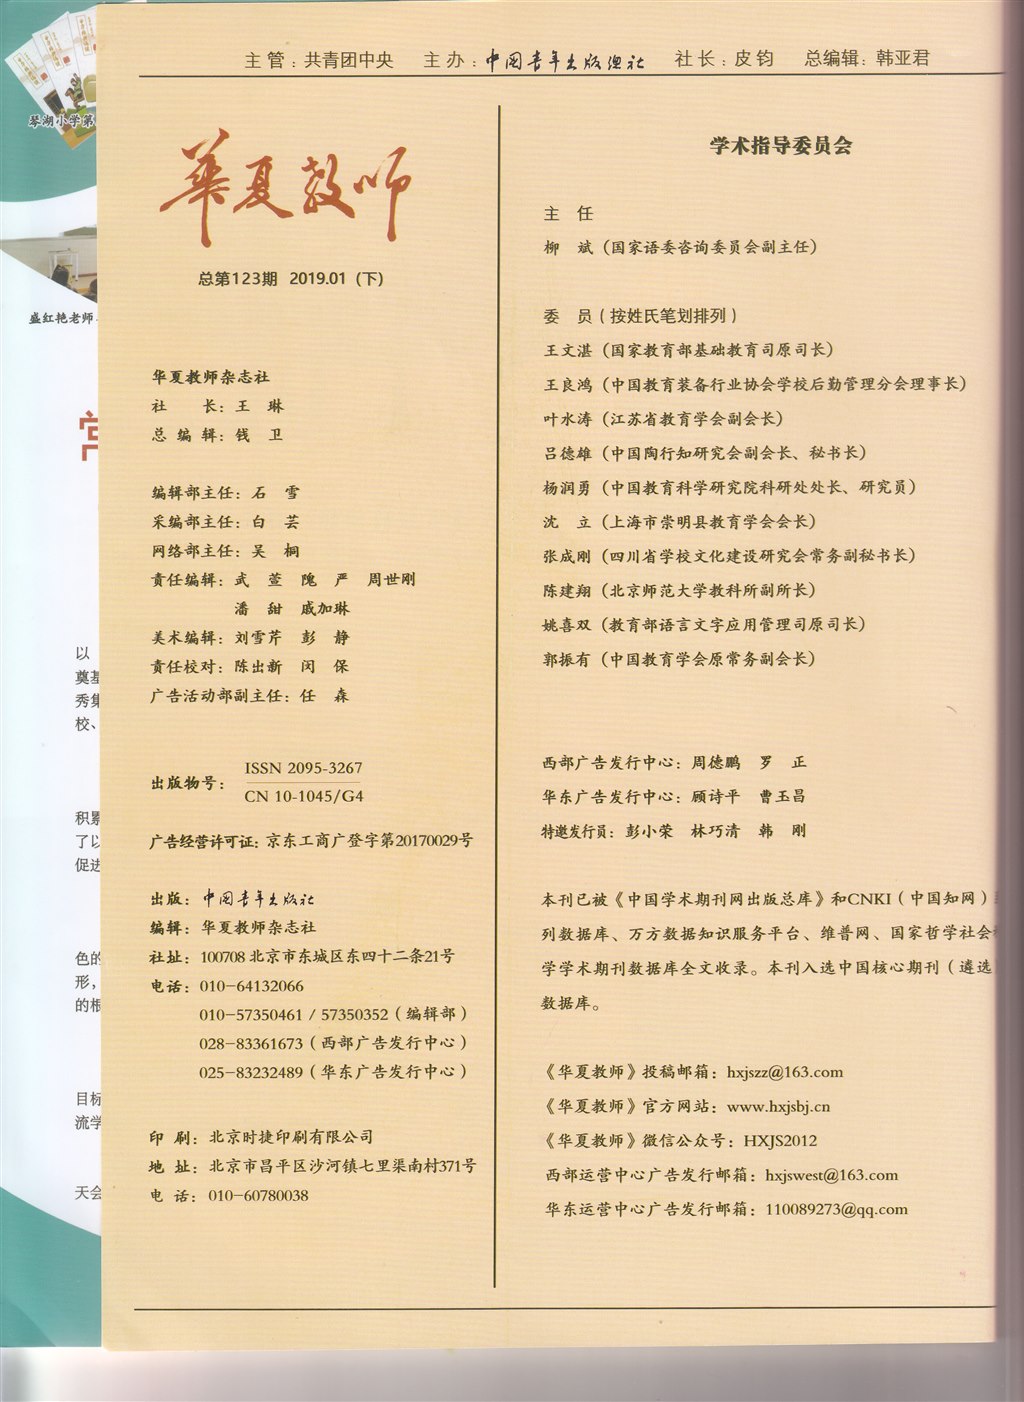 主管：共青团中央 主办：中国青年出版总社 社长：皮钧 总编辑：韩亚君
華夏教师
总第123期 2019.01（下）
华夏教师杂志社
社 长：王 琳
总 编 辑：钱 卫
编辑部主任：石 雪
采编部主任：白 芸
网络部主任：吴 桐
责任编辑：武 萱 隗 严 周世刚
潘 甜 戚加琳
美术编辑：刘雪芹 彭 静
责任校对：陈出新 闵 保
广告活动部副主任：任 森
出版物号：
ISSN 2095-3267
CN 10-1045/G4
广告经营许可证：京东工商广登字第20170029号
出版：中国青年出版社
编辑：华夏教师杂志社
社址：100708 北京市东城区东四十二条21号
电话：010-64132066
010-57350461 / 57350352（编辑部）
028-83361673（西部广告发行中心）
025-83232489（华东广告发行中心）
印 刷：北京时捷印刷有限公司
地 址：北京市昌平区沙河镇七里渠南村371号
电 话：010-60780038
学术指导委员会
主 任
柳 斌（国家语委咨询委员会副主任）
委 员（按姓氏笔划排列）
王文湛（国家教育部基础教育司原司长）
王良鸿（中国教育装备行业协会学校后勤管理分会理事长）
叶水涛（江苏省教育学会副会长）
吕德雄（中国陶行知研究会副会长、秘书长）
杨润勇（中国教育科学研究院科研处处长、研究员）
沈 立（上海市崇明县教育学会会长）
张成刚（四川省学校文化建设研究会常务副秘书长）
陈建翔（北京师范大学教科所副所长）
姚喜双（教育部语言文字应用管理司原司长）
郭振有（中国教育学会原常务副会长）
西部广告发行中心：周德鹏 罗 正
华东广告发行中心：顾诗平 曹玉昌
特邀发行员：彭小荣 林巧清 韩 刚
本刊已被《中国学术期刊网出版总库》和CNKI（中国知网）
列数据库、万方数据知识服务平台、维普网、国家哲学社会
学学术期刊数据库全文收录。本刊入选中国核心期刊（遴选
数据库。
《华夏教师》投稿邮箱：hxjszz@163.com
《华夏教师》官方网站：www.hxjsbj.cn
《华夏教师》微信公众号：HXJS2012
西部运营中心广告发行邮箱：hxjswest@163.com
华东运营中心广告发行邮箱：110089273@qq.com
琴湖小学第
盛红艳老师
以
奠基
秀集
校、
积累
了以
促进
色的
形，
的根
目标
流学
天会